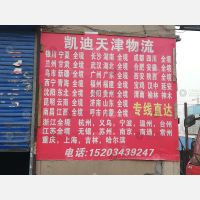 凯迪天津物流
银川宁夏 全境 长沙湖南 全境 成都四川 全境
兰州甘肃 全境 武汉湖北 全境 合肥安徽 全境
乌市新疆 全境 广州广东 全境 西安陕西 全境
西宁青海 全境 福州福建 全境 宝鸡 汉中 延安
沈阳东北 全境 贵阳贵州 全境 渭南 榆林 神木
昆明云南 全境 济南山东 全境
石家庄 全境 呼市内蒙 全境
专线直达
浙江全境 杭州,义乌,宁波,温州,台州
江苏全境 无锡,苏州,南京,南通,常州
重庆,上海,吉林,哈尔滨
电话:15203439247